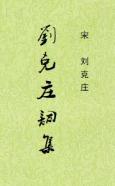 宋 刘克庄
劉克庄詞集